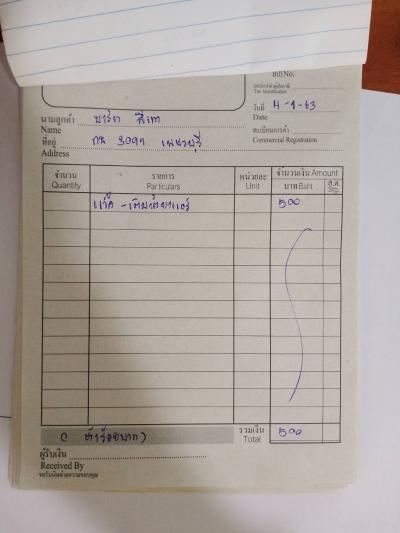 Bill No.
เลขประจำตัวผู้เสียภาษี
Tax Identification
วันที่ 4-1-63
Date
นามลูกค้า
Name
ทะเบียนการค้า
Commercial Registration
ที่อยู่ กษ 3097 เพชรบุรี
Address
จำนวน รายการ หน่วยละ จำนวนเงิน Amount
Quantity Particulars Unit บาท Baht ส.ต. Stg.
500
( ห้าร้อยบาท) รวมเงิน 500
Total
ผู้รับเงิน
Received By
ขอรับเงินด้วยความขอบคุณ